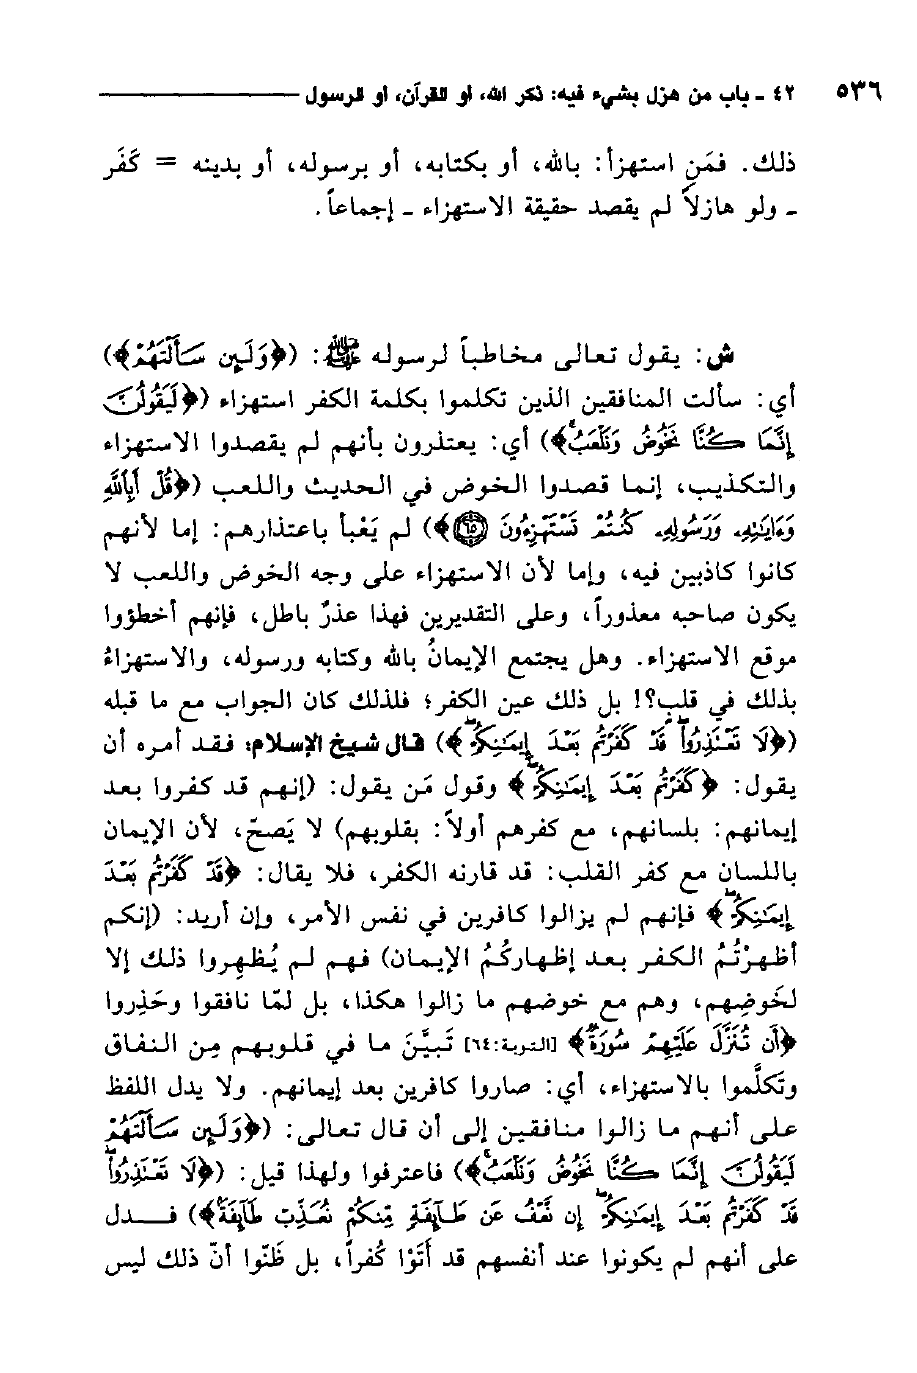 ٥٣٦ ٤٢ ـ باب من هزل بشيء فيه: ذكر الله، أو القرآن، أو الرسول
ذلك. فمَن استهزأ: بالله، أو بكتابه، أو برسوله، أو بدينه = كَفَر
ـ ولو هازلاً لم يقصد حقيقة الاستهزاء ـ إجماعاً.
ش: يقول تعالى مخاطباً لرسوله ﷺ: (﴿وَلَئِن سَأَلْتَهُمْ﴾)
أي: سألت المنافقين الذين تكلموا بكلمة الكفر استهزاء (﴿لَيَقُولُنَّ
إِنَّمَا كُنَّا نَخُوضُ وَنَلْعَبُ﴾) أي: يعتذرون بأنهم لم يقصدوا الاستهزاء
والتكذيب، إنما قصدوا الخوض في الحديث واللعب (﴿قُلْ أَبِاللَّهِ
وَءَايَٰتِهِۦ وَرَسُولِهِۦ كُنتُمْ تَسْتَهْزِءُونَ ٦٥﴾) لم يَعْبأ باعتذارهم: إما لأنهم
كانوا كاذبين فيه، وإما لأن الاستهزاء على وجه الخوض واللعب لا
يكون صاحبه معذوراً، وعلى التقديرين فهذا عذرٌ باطل، فإنهم أخطؤوا
موقع الاستهزاء. وهل يجتمع الإيمانُ بالله وكتابه ورسوله، والاستهزاءُ
بذلك في قلب؟! بل ذلك عين الكفر؛ فلذلك كان الجواب مع ما قبله
(﴿لَا تَعْتَذِرُوا۟ قَدْ كَفَرْتُم بَعْدَ إِيمَٰنِكُمْ﴾) قال شيخ الإسلام: فقد أمره أن
يقول: ﴿كَفَرْتُم بَعْدَ إِيمَٰنِكُمْ﴾ وقول مَن يقول: (إنهم قد كفروا بعد
إيمانهم: بلسانهم، مع كفرهم أولاً: بقلوبهم) لا يَصحّ، لأن الإيمان
باللسان مع كفر القلب: قد قارنه الكفر، فلا يقال: ﴿قَدْ كَفَرْتُم بَعْدَ
إِيمَٰنِكُمْ﴾ فإنهم لم يزالوا كافرين في نفس الأمر، وإن أريد: (إنكم
أظهرْتُمُ الكفر بعد إظهاركُمُ الإيمان) فهم لم يُظهِروا ذلك إلا
لخَوضِهم، وهم مع خوضهم ما زالوا هكذا، بل لمّا نافقوا وحَذِروا
﴿أَن تُنَزَّلَ عَلَيْهِمْ سُورَةٌ﴾ [التوبة:٦٤] تَبيَّنَ ما في قلوبهم مِن النفاق
وتكلَّموا بالاستهزاء، أي: صاروا كافرين بعد إيمانهم. ولا يدل اللفظ
على أنهم ما زالوا منافقين إلى أن قال تعالى: (﴿وَلَئِن سَأَلْتَهُمْ
لَيَقُولُنَّ إِنَّمَا كُنَّا نَخُوضُ وَنَلْعَبُ﴾) فاعترفوا ولهذا قيل: (﴿لَا تَعْتَذِرُوا۟
قَدْ كَفَرْتُم بَعْدَ إِيمَٰنِكُمْ إِن نَّعْفُ عَن طَآئِفَةٍ مِّنكُمْ نُعَذِّبْ طَآئِفَةً﴾) فــدل
على أنهم لم يكونوا عند أنفسهم قد أَتَوْا كُفراً، بل ظَنّوا أنّ ذلك ليس